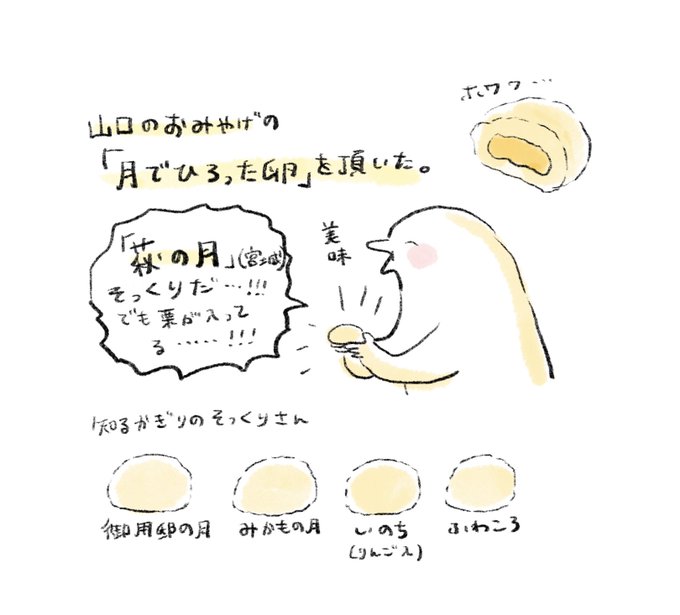 ホワワ…
山口のおみやげの
「月でひろった卵」を頂いた。
「萩の月」(宮城)
そっくりだ…!!!
でも栗が入って
る……!!!
美味
知るかぎりのそっくりさん
御用邸の月 みかもの月 いのち ふわころ
(りんご入)